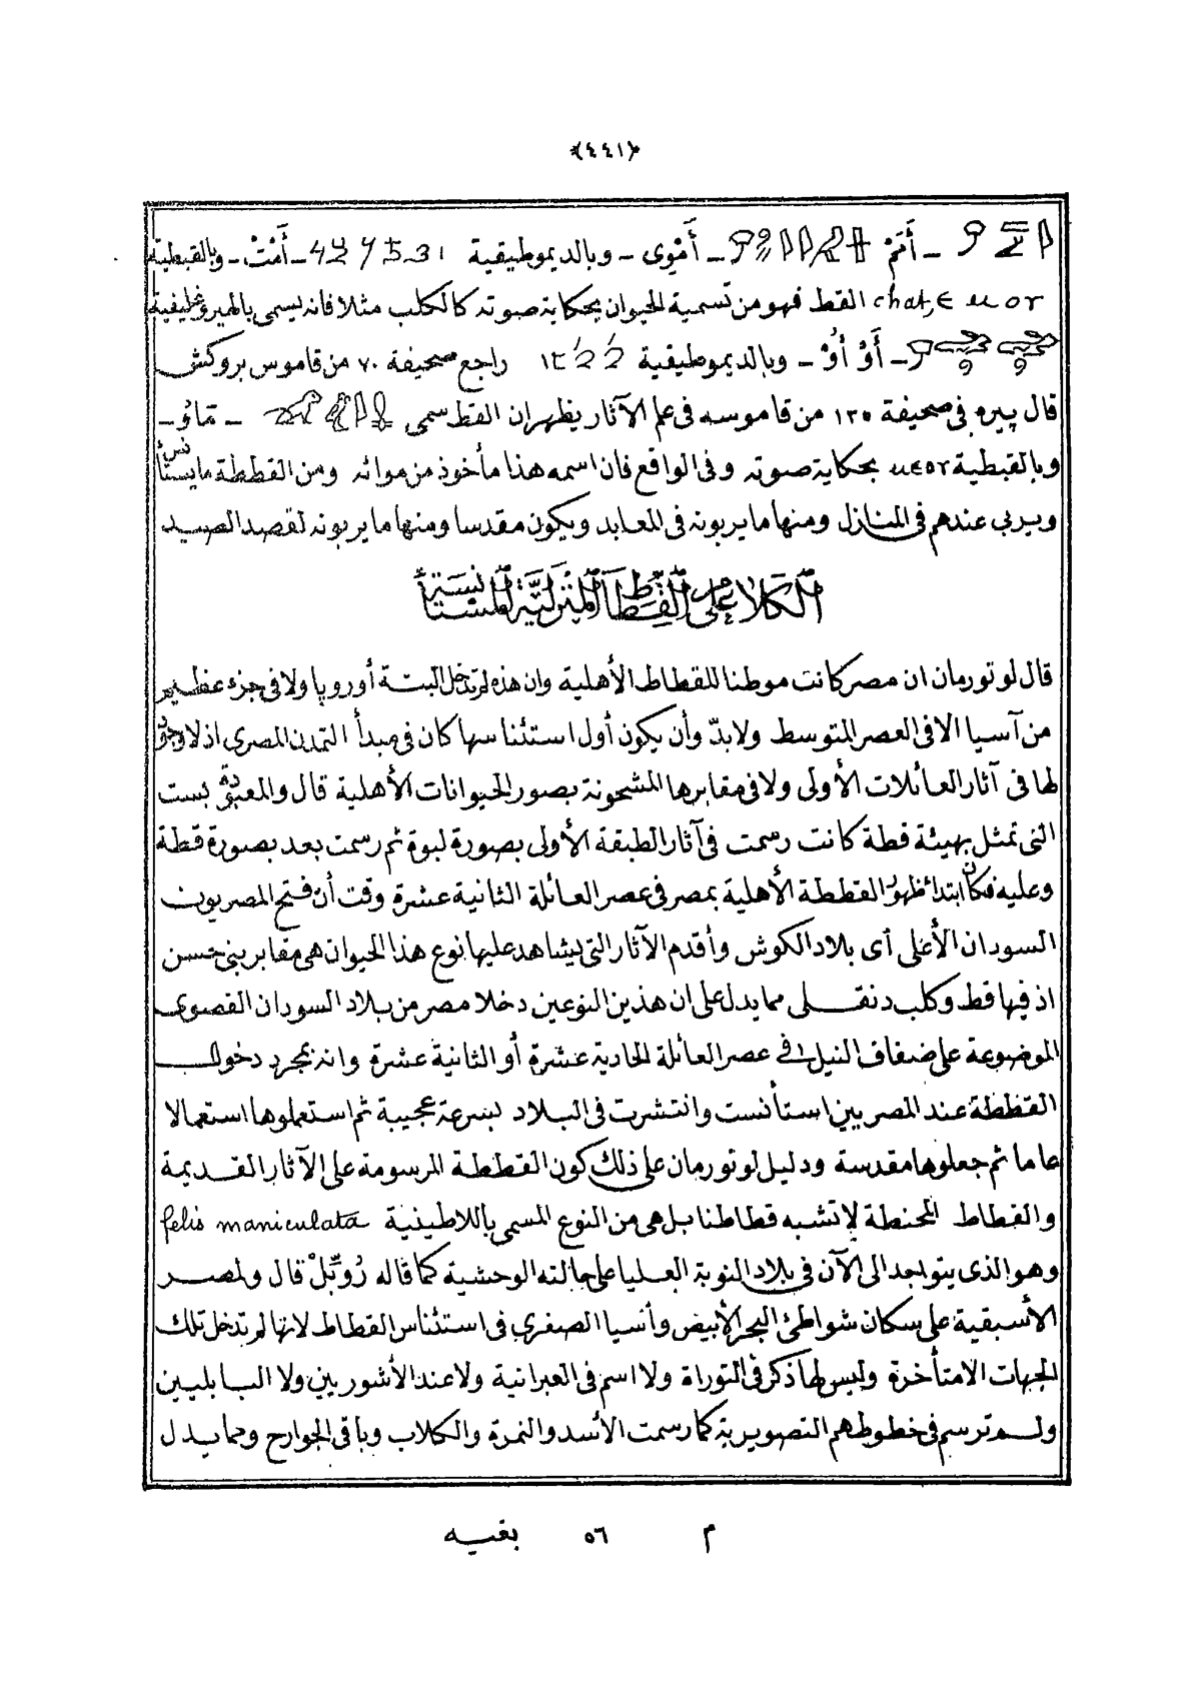 ﴿٤٤١﴾
ـ أَتَمْ ـ أَمْوِى ـ وبالديموطيقية ـ أَمْتْ ـ وبالقبطية
ⲉⲙⲟⲩ ,chat القط فهو من تسمية الحيوان بحكاية صوته كالكلب مثلا فانه يسمى بالهيروغليفية
ـ أَوْ أُوْ ـ وبالديموطيقية راجع صحيفة ٧٠ من قاموس بروكش
قال پيره فى صحيفة ١٣٥ من قاموسه فى علم الآثار يظهر ان القط سمى ـ مَاوُ ـ
وبالقبطية بحكاية صوته وفى الواقع فان اسمه هذا مأخوذ من موائه ومن القططة ما يستأنس
ويربى عندهم فى المنازل ومنها ما يربونه فى المعابد ويكون مقدسا ومنها ما يربونه لقصد الصيد
الكلام على القطاط المنزلية المستأنسة
قال لوتورمان ان مصر كانت موطنا للقطاط الأهلية وان هذه لم تدخل البتة أوروپا ولا فى جزء عظيم
من آسيا الا فى العصر المتوسط ولا بدّ وأن يكون أول استئناسها كان فى مبدأ التمدن المصرى اذ لا وجود
لها فى آثار العائلات الأولى ولا فى مقابرها المشحونة بصور الحيوانات الأهلية قال والمعبودة بست
التى تمثل بهيئة قطة كانت رسمت فى آثار الطبقة الأولى بصورة لبوة ثم رسمت بعد بصورة قطة
وعليه فكان ابتدا ظهور القططة الأهلية بمصر فى عصر العائلة الثانية عشرة وقت أن فتح المصريون
السودان الأعلى أى بلاد الكوش وأقدم الآثار التى يشاهد عليها نوع هذا الحيوان هى مقابر بنى حسن
اذ فيها قط وكلب دنقلى مما يدل على ان هذين النوعين دخلا مصر من بلاد السودان القصوى
الموضوعة على ضفاف النيل فى عصر العائلة الحادية عشرة أو الثانية عشرة وانه بمجرد دخول
القططة عند المصريين استأنست وانتشرت فى البلاد بسرعة عجيبة ثم استعملوها استعمالا
عاما ثم جعلوها مقدسة ودليل لوتورمان على ذلك كون القططة المرسومة على الآثار القديمة
والقطاط المحنطة لا تشبه قطاطنا بل هى من النوع المسمى باللاطينية felis maniculata
وهو الذى يتواجد الى الآن فى بلاد النوبة العليا على حالته الوحشية كما قاله رُوبِّلْ قال ولمصر
الأسبقية على سكان شواطئ البحر الأبيض وأسيا الصغرى فى استئناس القطاط لانها لم تدخل تلك
الجهات الا متأخرة وليس لها ذكر فى التوراة ولا اسم فى العبرانية ولا عند الأشوريين ولا البابليين
ولم ترسم فى خطوطهم التصويرية كما رسمت الأسد والنمرة والكلاب وباقى الجوارح ومما يدل
م ٥٦ بغيه